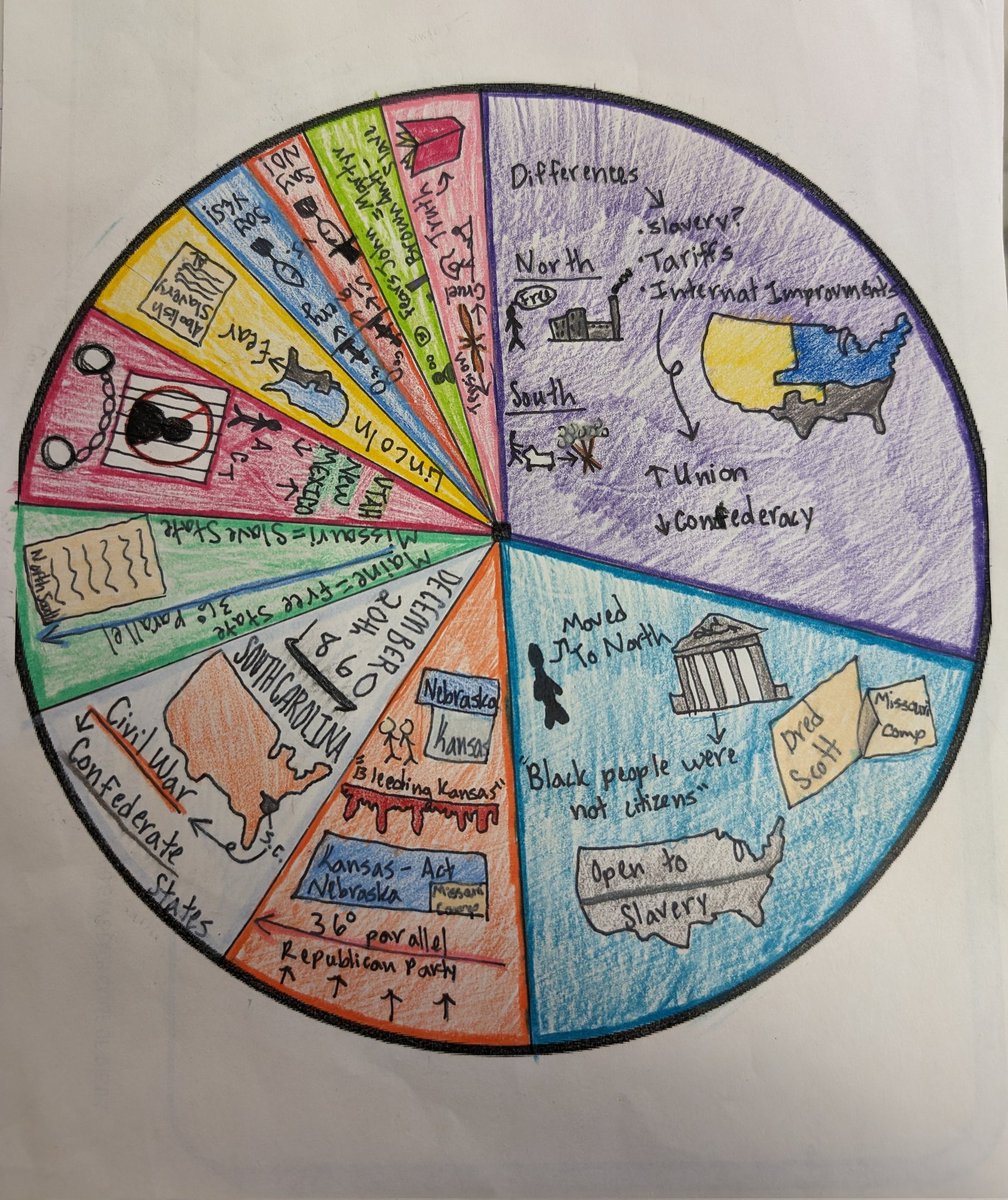 Differences
• slavery?
• Tariffs
• Internal Improvments
North
Free
South
↑ Union
↓ Confederacy
Moved
To North
"Black people were
not citizens"
Dred
Scott
Missouri
Comp
Open to
Slavery
Nebraska
Kansas
"Bleeding Kansas"
Kansas - Act
Nebraska
Missouri
Comp
36° parallel
Republican Party
DECEMBER
20th
1860
SOUTH CAROLINA
S.C.
Civil War
Confederate
States
Missouri = Slave State
Maine = Free State
36° parallel
UTAH
New
Mexico
ACT
Lincoln
Fear
Abolish
Slavery
Say
YES!
Slavery
Say
NO!
Slavery
John
Brown
Martyr
Fears
Slave
Truth
Cruel